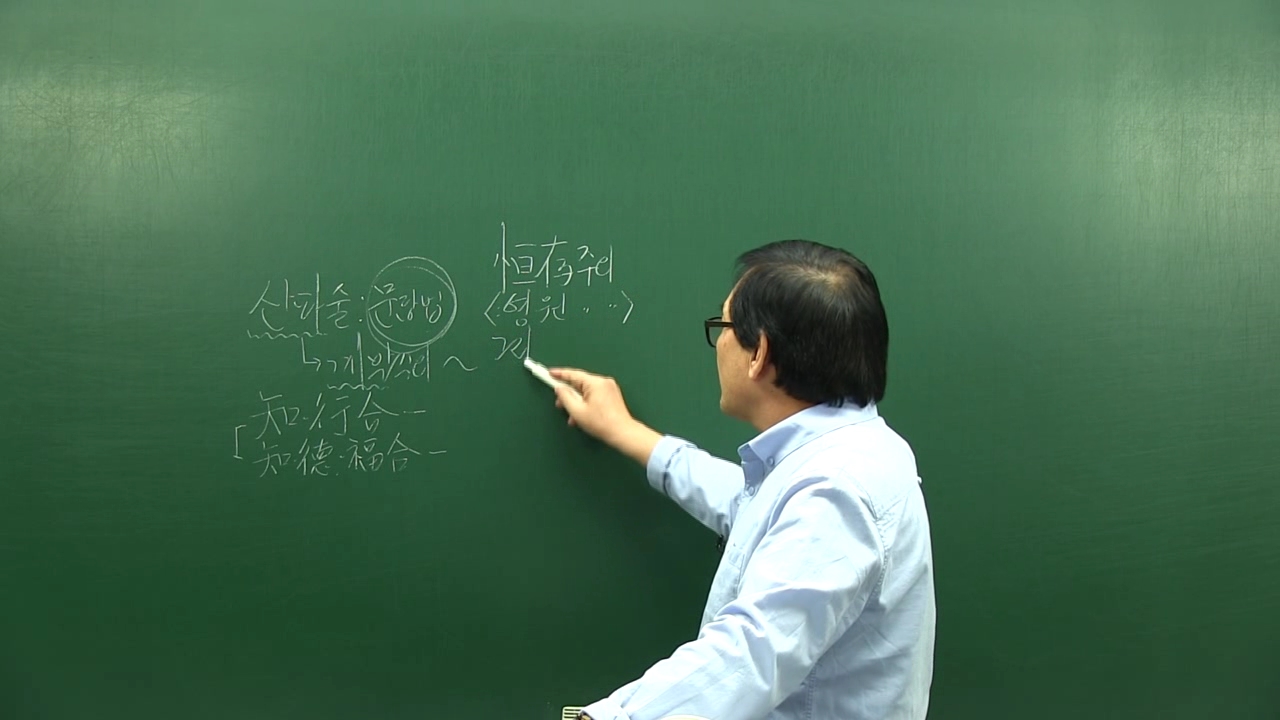 산파술: 문답법
↳ 계발식의 ~
知·行合一
[知·德·福合一
恒存주의
<영원 〃 〃>